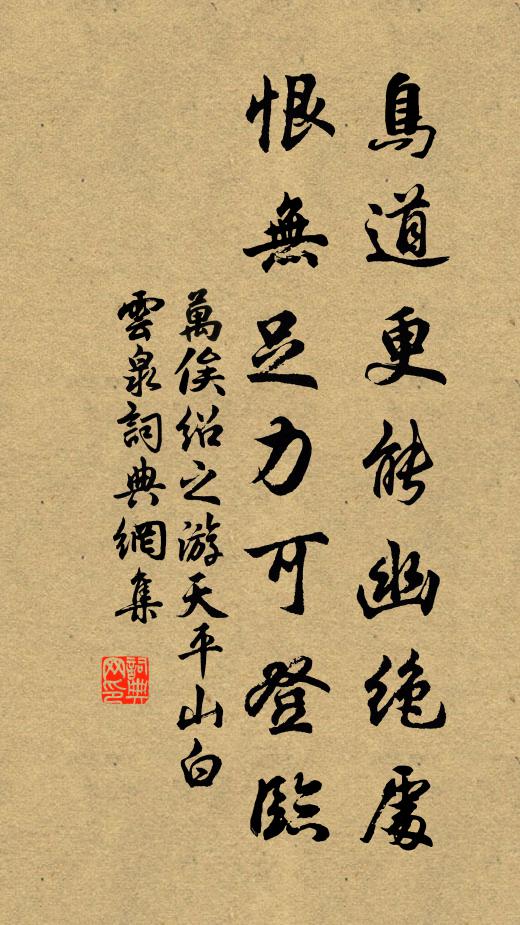 鳥道更能幽絶處
恨無足力可登臨
萬俟绍之游天平山白
雲泉詞典網集
詞典網印